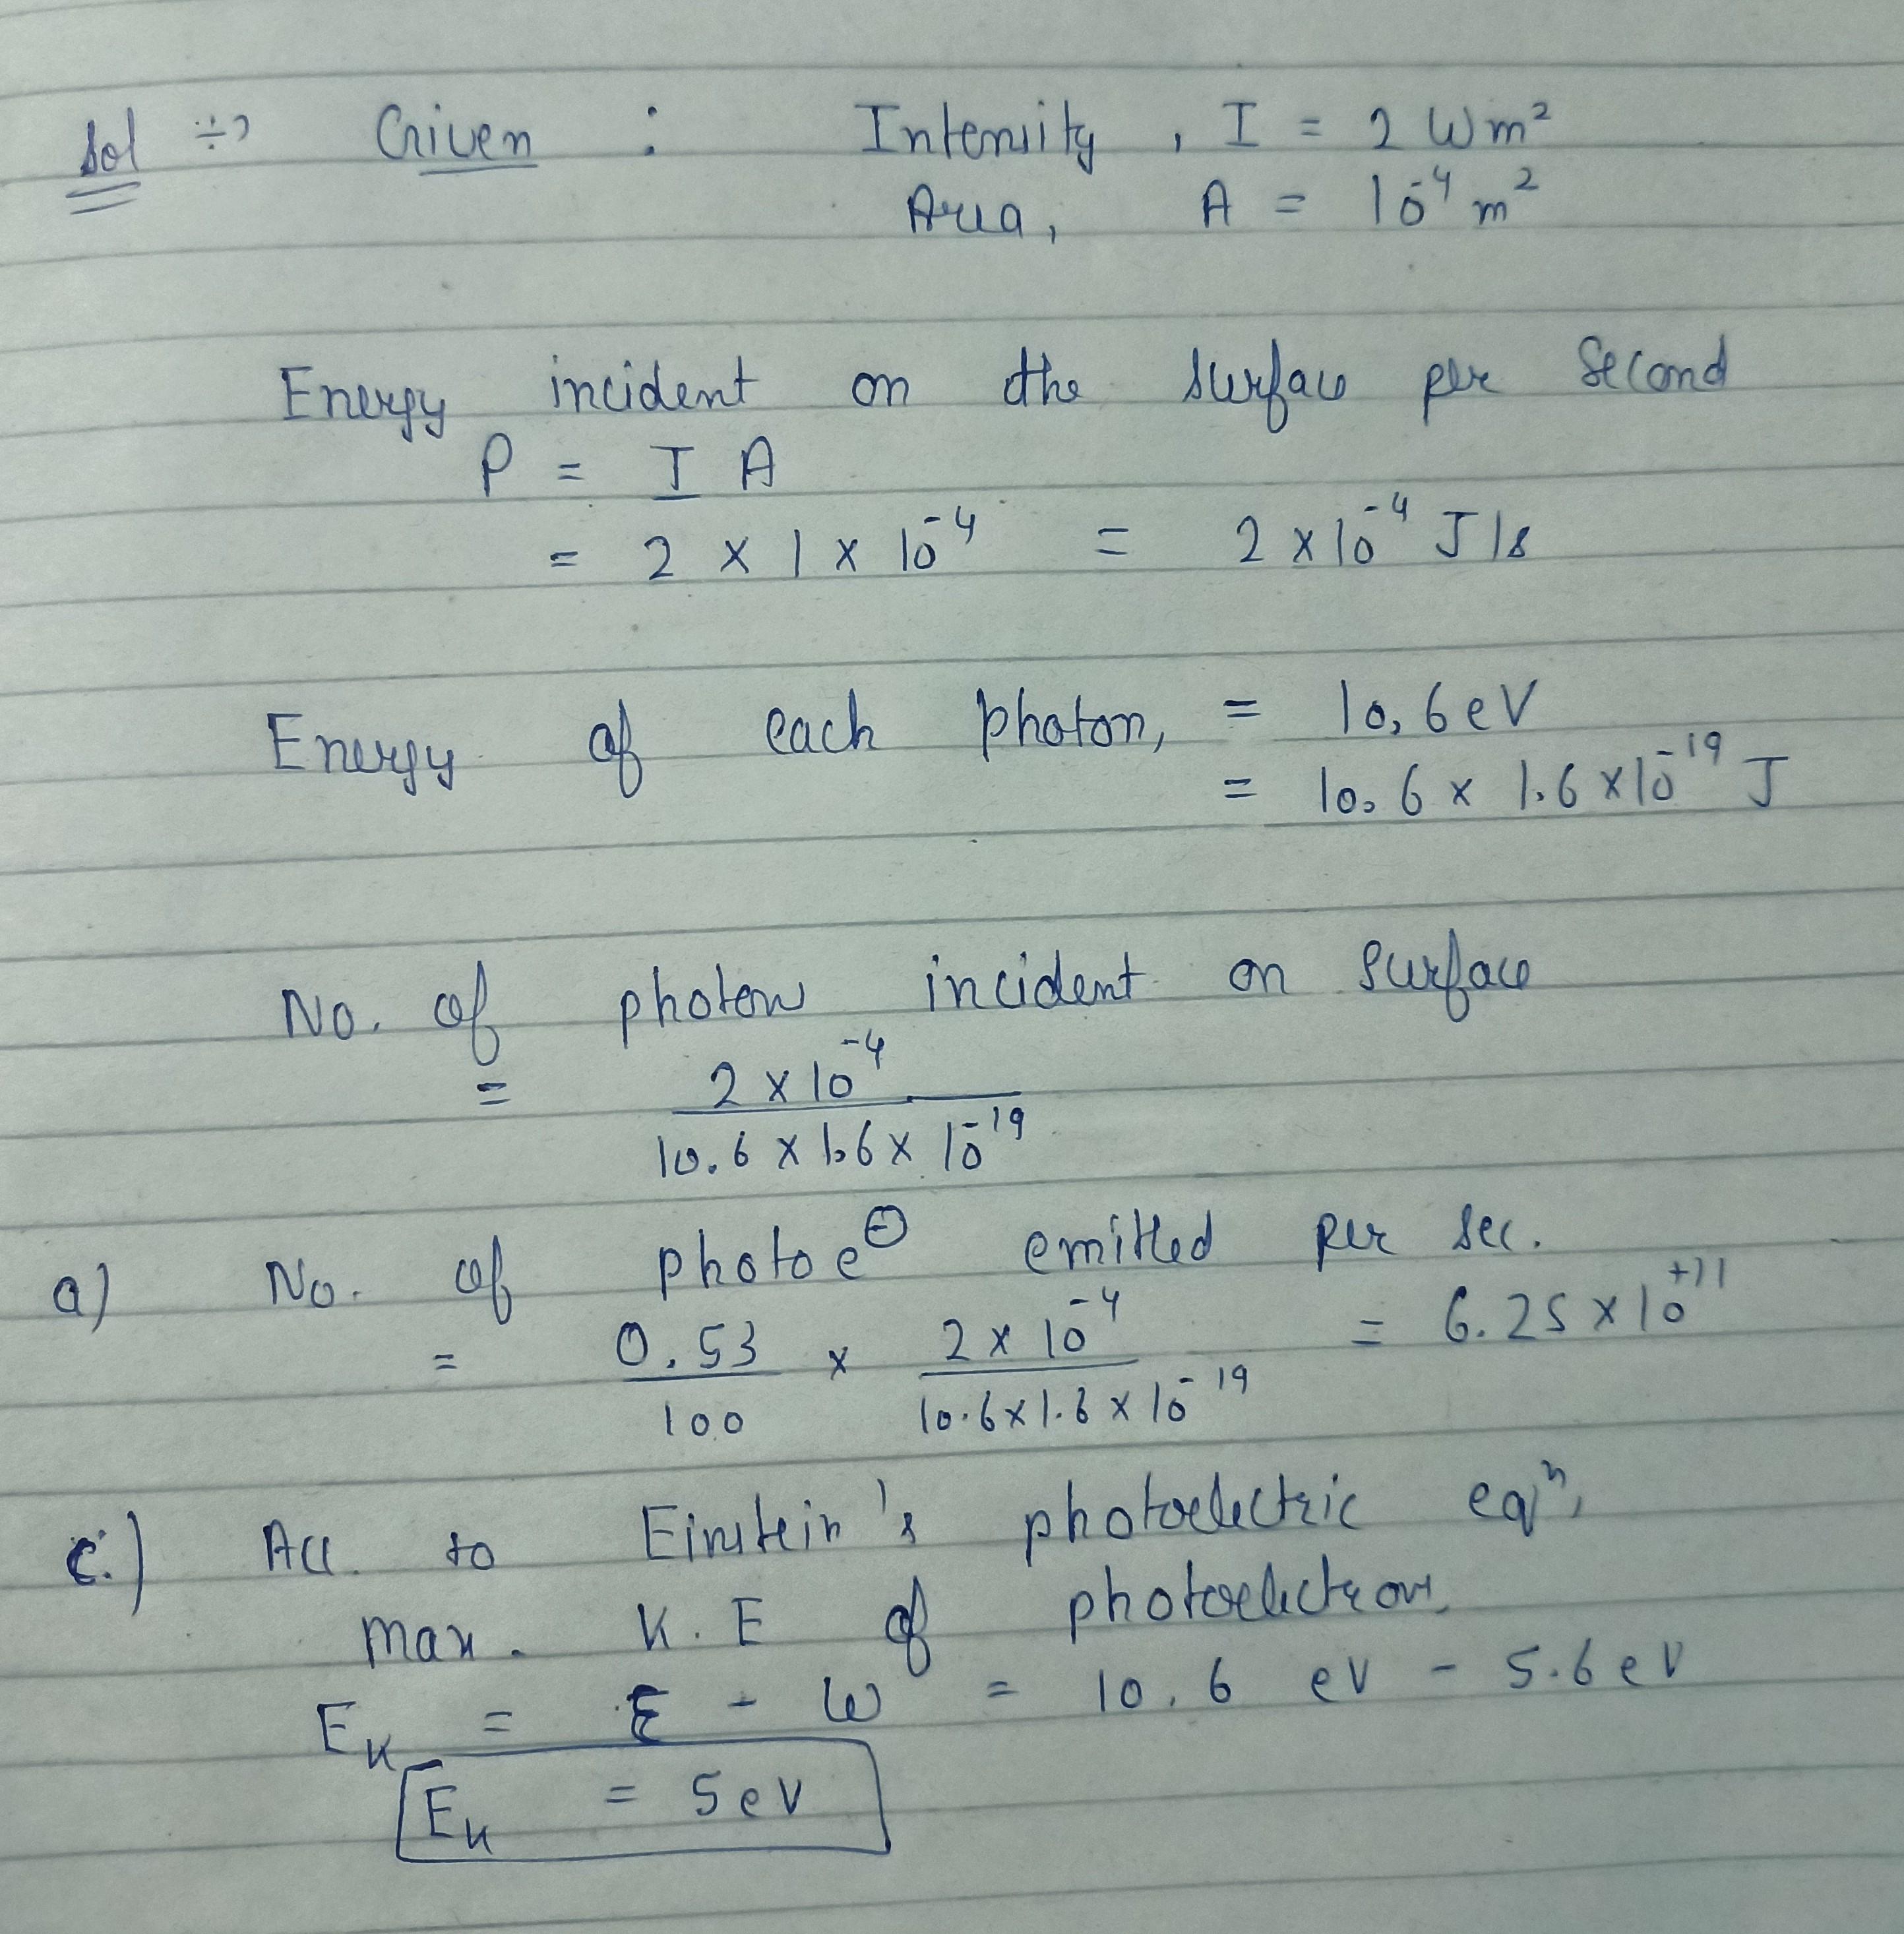 Sol ÷> Given : Intensity , I = 2 Wm²
Area, A = 10⁻⁴ m²
Energy incident on the surface per second
P = I A
= 2 x 1 x 10⁻⁴ = 2 x 10⁻⁴ J/s
Energy of each photon, = 10.6 eV
= 10.6 x 1.6 x 10⁻¹⁹ J
No. of photons incident on surface
= 2 x 10⁻⁴
10.6 x 1.6 x 10⁻¹⁹
a) No. of photo e⊖ emitted per sec.
= 0.53 x 2 x 10⁻⁴ = 6.25 x 10⁺¹¹
100 10.6 x 1.6 x 10⁻¹⁹
c.) Acc. to Einstein's photoelectric eqⁿ,
max. K.E of photoelectrons,
Eₖ = E - W = 10.6 eV - 5.6 eV
Eₖ = 5 eV